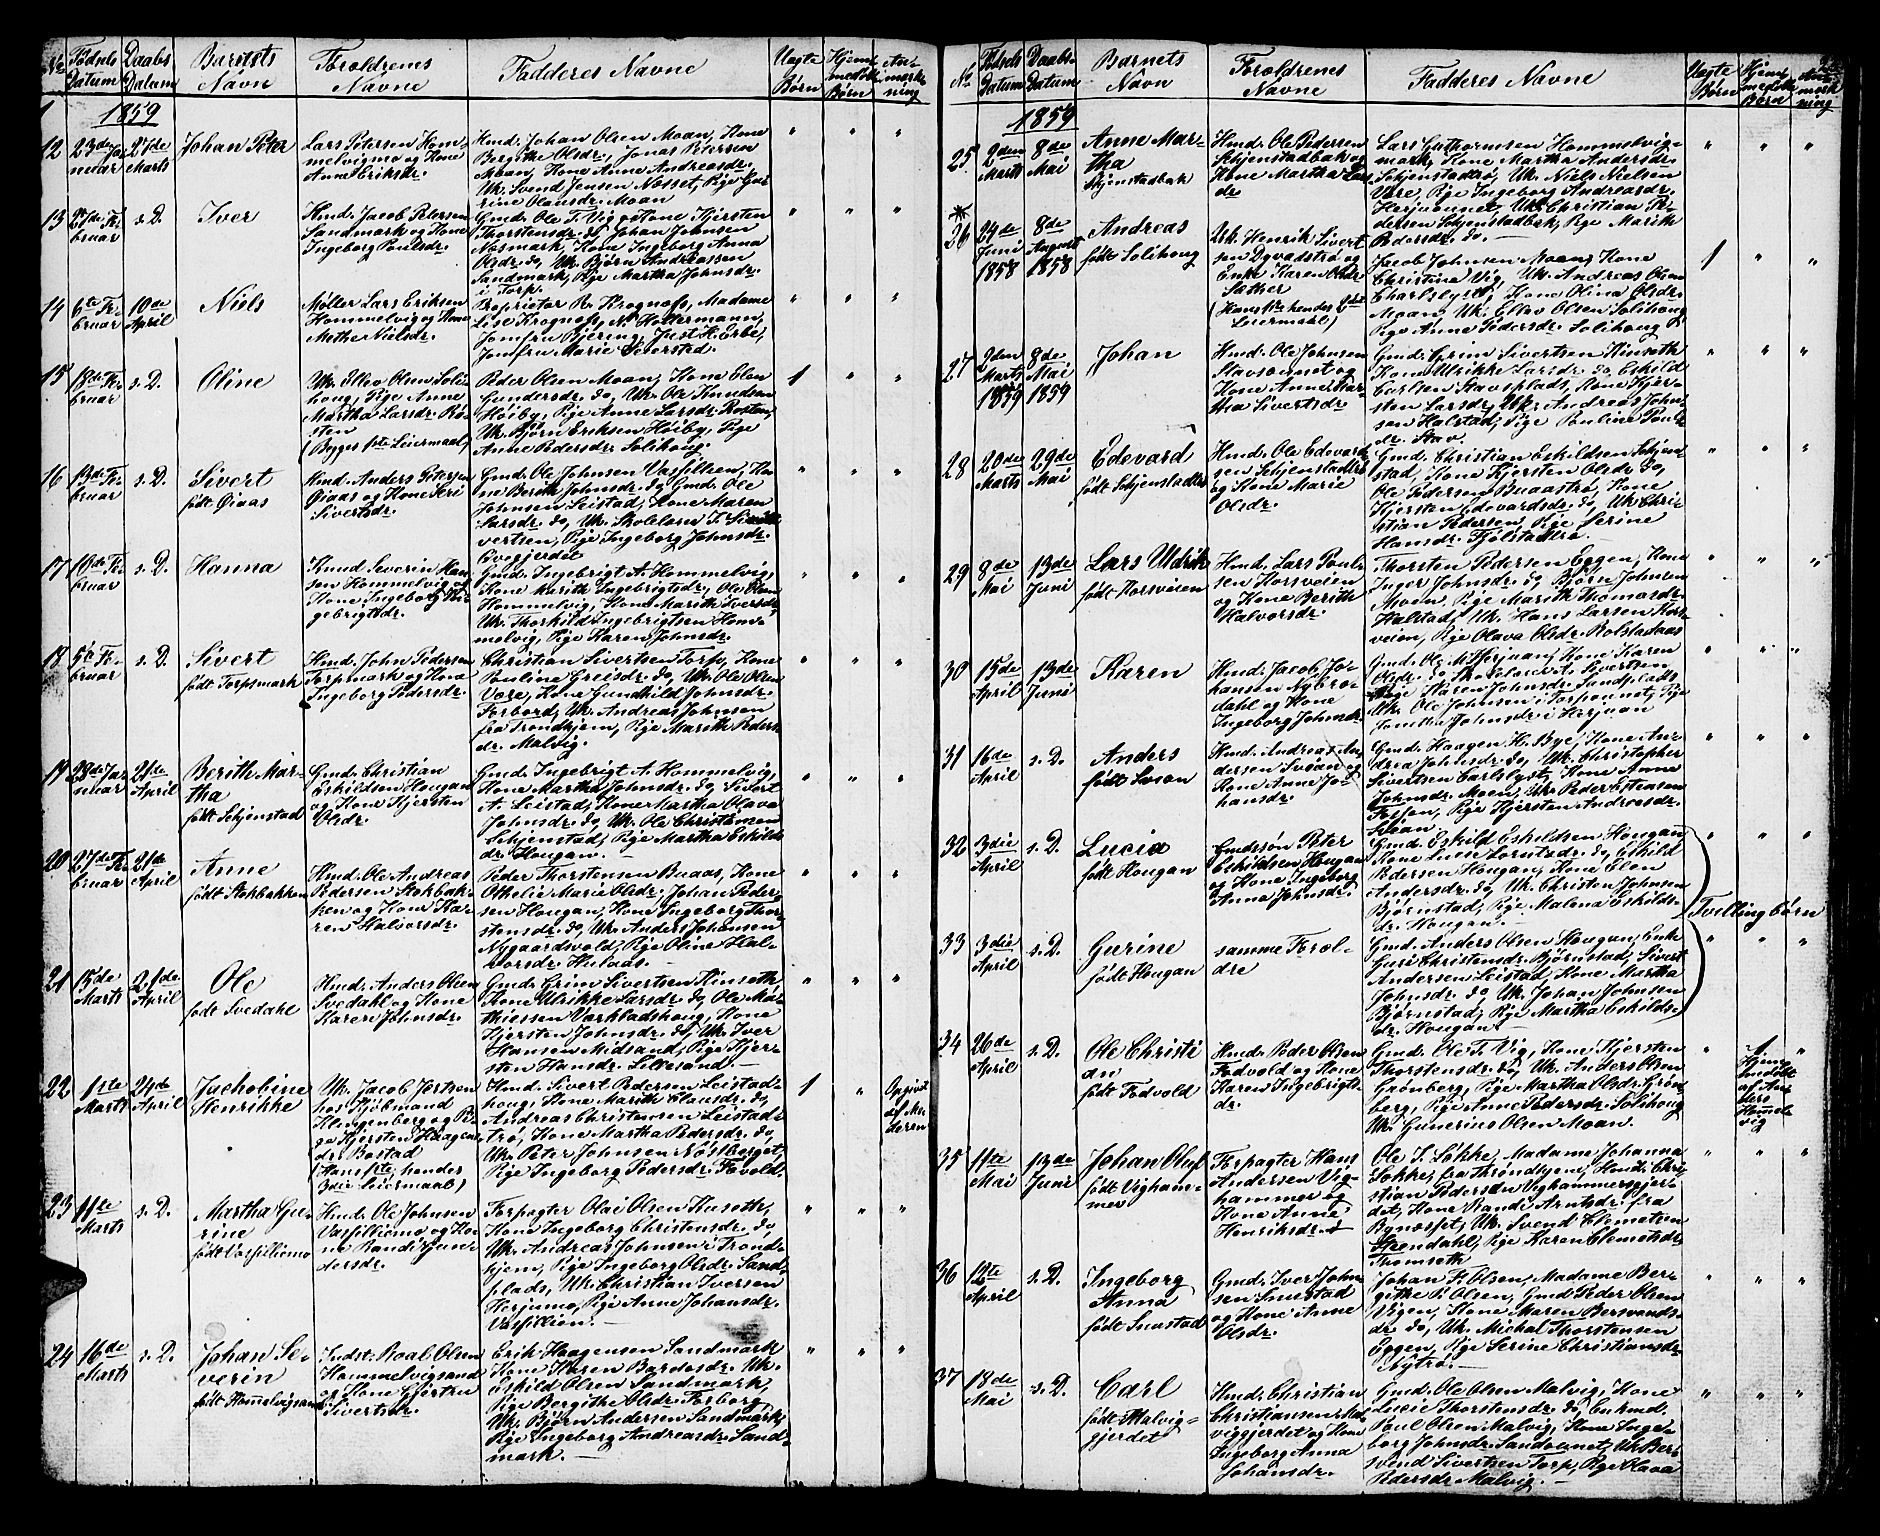 No Fødsels Datum Daabs Datum Barnets Navn Forældrenes Navne Faddernes Navne Uægte Børn Hjemmedøbte Børn Anmærkning
1859
12 23de Januar 27de Marts Johan Peter
Lars Petersen Hommelvigmo og Kone Anne Eriksdr.
Hmd. Johan Olsen Moan, Kone
Bergithe Olsdr., Jonas Petersen
Moan, Kone Anne Andreasdr.
Uk. Svend Jensen Næsset, Pige Gurine Olausdr. Moan
13 27de Februar s. D. Iver
Hmd. Jacob Petersen Sandmark og Kone Ingeborg Poulsdr.
Gmd. Ole T. Viggs Kone Kjersten
Thorstensdr. do, Johan Johnsen
Næsmark, Kone Ingeborg Anna
Olsdr. do, Uk. Bjørn Andreassen
Sandmark, Pige Martha Johnsdr.
i Torp.
14 6te Februar 10de April Niels
Møller Lars Eriksen Hommelvig og Kone Methe Nielsdr.
Proprietær R. Krognæss, Madame
Lise Krognæss, N. Holtermann,
Jomfru Bjering, Just H. Erbe,
Jomfru Marie Severstad.
15 18de Februar s. D. Oline
Uk. Ellev Olsen Solihoug, Pige Anne Martha Larsdr. Rosten
(Begges 1ste Leiermaal)
Peder Olsen Moan, Kone Elen
Gundersdr. do, Uk. Ole Knudsen
Høiby, Pige Anne Larsdr. Rosten,
Uk. Bjørn Eriksen Høiby, Pige
Anne Pedersdr. Solihoug.
1
16 13de Februar s. D. Sivert
født Øiaas
Hmd. Anders Petersen Øiaas og Kone Seri Sivertsdr.
Gmd. Ole Johnsen Væsfillien, Kone Berith Johnsdr. do, Gmd. Ole
Johnsen Leistad, Kone Maren
Larsdr. do, Uk. Skolelærer T. Sivertsen, Pige Ingeborg Johnsdr.
17 10de Februar s. D. Hanna
Knud Severin Hansen Hommelvig og Kone Ingeborg Ingebrigtsdr.
Gmd. Ingebrigt A. Hommelvig,
Kone Marith Ingebrigtsdr., Ole Olsen
Hommelvig, Kone Marith Iversdr.
Uk. Thorkild Ingebrigtsen Hommelvig, Pige Karen Johnsdr.
18 5te Februar s. D. Sivert
født Torpsmark
Hmd. John Pedersen Torpmark og Kone Ingeborg Pedersdr.
Christian Sivertsen Torp, Kone
Pauline Greisdr. do, Uk. Ole Olsen
Være, Kone Gundhild Johnsdr.
Forbord, Uk. Andreas Johnsen
fra Trondhjem, Pige Marith Pedersdr. Malvig.
19 28de Januar 21de April Berith Martha
født Schjenstad
Gmd. Christian Eskildsen Hougan og Kone Kjersten Olsdr.
Gmd. Ingebrigt A. Hommelvig,
Kone Martha Johnsdr. do, Sivert
A. Leistad, Kone Martha Olava
Johnsdr. do, Uk. Ole Christensen
Schjenstad, Pige Martha Eskildsdr. Hougan.
20 27de Februar 21de April Anne
født Stokbakken
Hmd. Ole Andreas Pedersen Stokbakken og Kone Karen Halvorsdr.
Peder Thorstensen Buaas, Kone
Othelie Marie Olsdr., Johan Pedersen Hougan, Kone Ingeborg Thorstensdr. do, Uk. Anders Johansen
Nygaardsvold, Pige Oline Halvorsdr. Hulaas.
21 15de Marts 21de April Ole
født Svedahl
Hmd. Anders Olsen Svedahl og Kone Karen Johnsdr.
Gmd. Grim Sivertsen Kinseth
Kone Ulrikke Larsdr. do, Ole Mathiessen Værkladshoug, Kone
Kjersten Johnsdr. do, Uk. Iver
Hansen Midsand, Pige Kjersten Hansdr. Lillesand.
22 1ste Marts 24de April Jachobine Henrikke
Uk. Jacob Jertsen hos Kjøbmand Klingenberg og Pige Kjersten Haagensdr. Bostad
(Hans 1ste, hendes 3die Leiermaal)
Hmd. Sivert Pedersen Leistadhoug, Kone Marith Clausdr. do,
Andreas Christensen Leistadtrø, Kone Martha Pedersdr. do,
Uk. Peter Johnsen Næstberget,
Pige Ingeborg Pedersdr. Fævold.
1 Opgivet af Moderen
23 11te Marts s. D. Martha Gurine
født Væsfilliemo
Hmd. Ole Johnsen Væsfilliemo og Kone Randi Gundersdr.
Forpagter Olai Olsen Huseth,
Kone Ingeborg Christensdr. do,
Uk. Andreas Johnsen i Trondhjem, Pige Ingeborg Olsdr. Sandplads, Uk. Christian Iversen
Herjumo, Pige Anne Johansdr.
Væsfillien.
24 16de Marts s. D. Johan Severin
født Hommelvigsand
Indst. Roal Olsen Hommelvigsand og Kone Gjertru Sivertsdr.
Erik Haagensen Sandmark
Kone Karen Bardosdr. Uk.
Eskild Olsen Sandmark,
Pige Bergithe Olsdr. Forborg,
Uk. Bjørn Andersen Sandmark,
Pige Ingeborg Andreasdr. Sandmark.
No Fødsels Datum Daabs Datum Barnets Navn Forældrenes Navne Faddernes Navne Uægte Børn Hjemmedøbte Børn Anmærkning
1859
25 2den Marts 8de Mai Anne Martha
Schjenstadbak
Hmd. Ole Pedersen Schjenstadbak og Kone Martha Larsdr
Lars Guthormsen Hommelvigmark, Kone Martha Andersdr.
Schjenstadtrø, Uk. Niels Nielsen
Være, Pige Ingeborg Andreasdr.
Herjuaunet, Uk. Christian Pedersen Schjenstadbak, Pige Marith
Pedersdr. do.
26 24de Juni 1858 8de August 1858 Andreas
født Solihoug
Uk. Henrik Sivertsen Dyvadstrø og Enke Karen Olsdr Sæther
(Hans 1ste hendes 2det Leiermaal)
Jacob Johnsen Moan, Kone
Christina Vig, Uk. Andreas Olsen
Charlslyst, Kone Olina Olsdr.
Moan, Uk. Ellev Olsen Solihoug,
Pige Anne Pedersdr. Solihoug
1
27 9den Marts 1859 8de Mai 1859 Johan
Hmd. Ole Johnsen Stavsaunet og Kone Anne Martha Sivertsdr
Gmd. Grim Sivertsen Kinseth
Kone Ulrikke Larsdr. do, Eskild
Carlsen Stavsplads, Kone Kjersten Larsdr, Uk. Andreas Johnsen Halstad, Pige Pauline Poulsdr. Stav.
28 20de Marts 29de Mai Edevard
født Schjenstadtrø
Hmd. Ole Edevardsen Schjenstadtrø og Kone Marie Olsdr.
Gmd. Christian Eskildsen Schjenstad, Kone Kjersten Olsdr. do,
Ole Pedersen Buaastrø, Kone
Kjersten Edevardsdr. do, Uk. Christian Pedersen, Pige Serine
Hansdr. Fjølstadtrø.
29 8de Mai 13de Juni Lars Uldrik
født Korsveien
Hmd. Lars Poulsen Korsveien og Kone Berith Halvorsdr.
Thorsten Pedersen Eggen, Kone
Inger Johnsdr. do, Bjørn Johnsen
Moen, Pige Marith Thomasdr.
Halstad, Uk. Hans Larsen Korsveien, Pige Olava Olsdr. Rolstadaas
30 15de April 13de Juni Karen
Hmd. Jacob Johansen Nybrodahl og Kone Ingeborg Johnsdr.
Gmd. Ole M. Herjuan, Kone Karen
Olsdr. do, Skolelærer T. Sivertsen
Pige Karen Johnsdr. Sandplads
Uk. Ole Johnsen i Torpaunet, Pige
Johnsdr. i Herjuan
31 16de April s. D. Anders
født Svean
Hmd. Andreas Andersen Svean og Kone Anne Johansdr.
Gmd. Haagen H. Bye, Kone Andrea Johnsdr. do, Uk. Christopher
Sivertsen Carlslyst, Kone Anne
Johnsdr. Moen, Uk. Peder Estensen
Pige Kjersten Andreasdr.
Svean.
32 3die April s. D. Lucia
født Hougan
Gmdssøn Peter Eskildsen Hougan og Kone Ingeborg Anna Johnsdr.
Gmd. Eskild Eskildsen Hougan
Kone Lusie Lorntsdr. do, Eskild
Pedersen Hougan, Kone Elen
Andersdr. do, Uk. Christen Johnsen
Bjørnstad, Pige Malena Eskildsdr. Hougan.
Tvillingbørn
33 3die April s. D. Gurine
født Hougan
samme Forældre
Gmd. Anders Olsen Hougan, Enke
Guri Christensdr. Bjørnstad, Sivert
Andersen Leistad, Kone Martha
Johnsdr. do, Uk. Johan Johnsen
Bjørnstad, Pige Martha Eskildsdr. Hougan.
34 26de April s. D. Ole Christian
født Fædvold
Hmd. Peder Olsen Fædvold og Kone Karen Ingebrigtsdr.
Gmd. Ole T. Vig, Kone Kjersten
Thorstensdr. do, Uk. Anders Olsen
Grønberg, Pige Martha Olsdr. Grønberg, Pige Anne Pedersdr. Solihoug
Uk. Gunerius Olsen Moan.
1 Hjemmedøbt af Anders Hommelvig
35 11te Mai 13de Juni Johan Oluf
født Vighammer
Forpagter Hans Andersen Vighammer og Kone Anne Henriksdr.
Ole T. Løkke, Madame Johanna
Løkke, fra Throndhjem, Hmd. Christian Pedersen Vighammergjerdet, Kone Randi Arntsdr. fra
Bynæsset, Uk. Svend Clemetsen
Steendahl, Pige Karen Clemetsdr.
Thomseth
36 12te April s. D. Ingeborg Anna
født Snustad
Gmd. Iver Johnsen Snustad og Kone Anne Olsdr.
Johan F. Olsen, Madame Bergithe B. Olsen, Gmd Peder Olsen
Vigen, Kone Maren Bersvendsdr. do, Uk. Michal Thorstensen
Eggen, Pige Serine Christiansdr.
Nytrø.
37 18de Mai s. D. Carl
født Malviggjerdet
Hmd. Christian Christiansen Malviggjerdet og Kone Ingeborg Anna Johansdr.
Gmd. Ole Olsen Malvig, Kone
Lucie Thorstensdr. do, Enkmd.
Paul Olsen Malvig, Kone Ingeborg Johnsdr. Sandaunet, Uk Bersvend Sivertsen Torp, Pige Olava
Pedersdr Malvig.